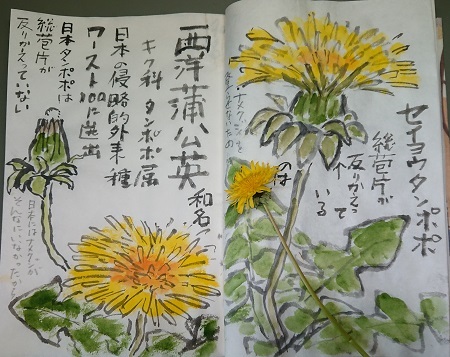 セイヨウタンポポ
総苞片が
反りかえって
いる
のは
西洋蒲公英
和名
キク科 タンポポ属
日本の侵略的外来種
ワースト100に選出
日本タンポポは
総苞片が
反りかえっていない
日本にはナメクジが
そんなにいなかったから